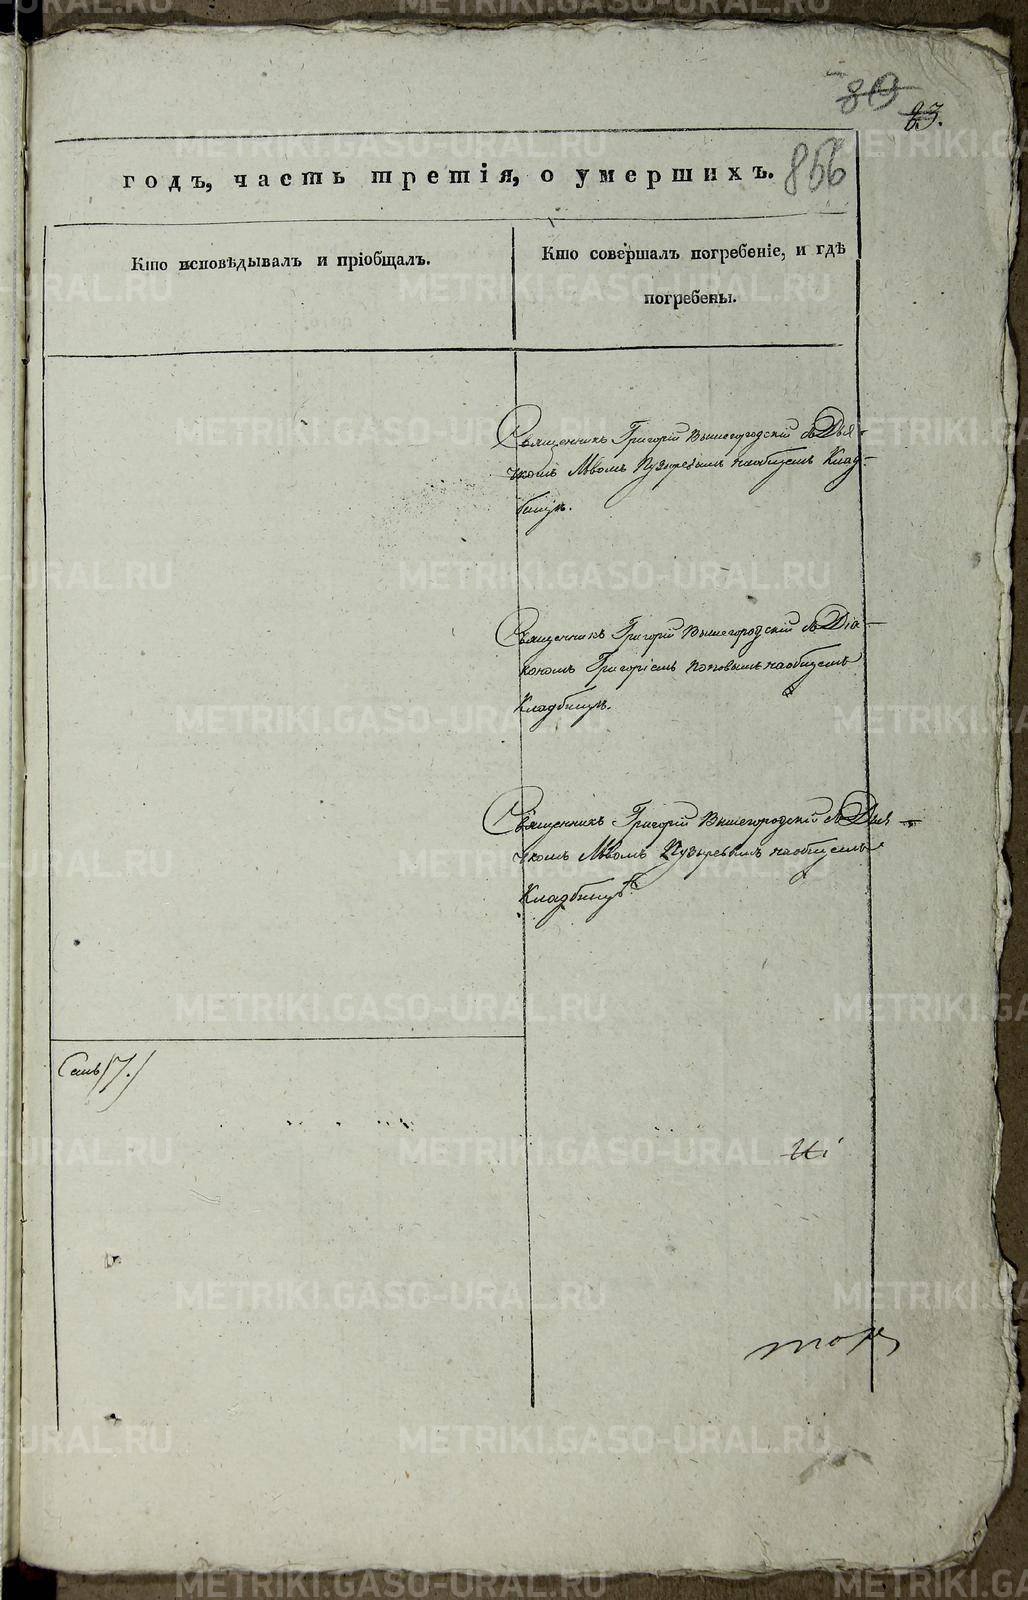 80
23.
856
годъ, часть третія, о умершихъ.
Кто исповѣдывалъ и пріобщалъ.
Кто совершалъ погребеніе, и гдѣ
погребены.
Священникъ Григорій Вышегородскій съ Дья-
чкомъ Львомъ Пузыревымъ на общемъ Клад-
бищѣ.
Священникъ Григорій Вышегородскій съ Діа-
кономъ Григоріемъ Поповымъ на общемъ
Кладбищѣ.
Священникъ Григорій Вышегородскій съ Дья-
чкомъ Львомъ Пузыревымъ на общемъ
Кладбищѣ.
METRIKI.GASO-URAL.RU